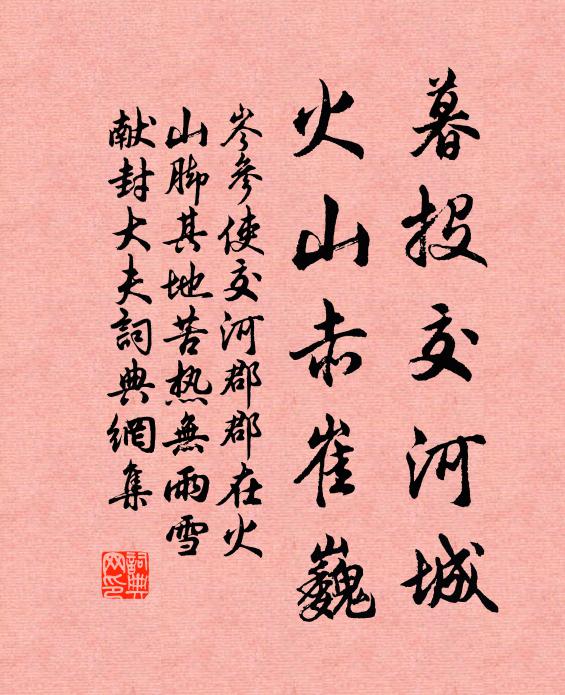 暮投交河城
火山赤崔巍
岑參使交河郡郡在火
山脚其地苦热無雨雪
献封大夫詞典網集
詞典网印